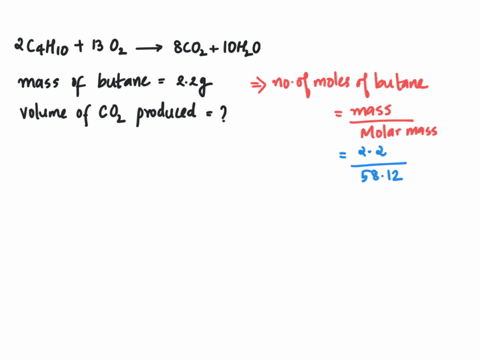 2C4H10 + 13 O2 → 8CO2 + 10H2O
mass of butane = 2.2g
volume of CO2 produced = ?
⇒ no. of moles of butane
= mass
Molar mass
= 2.2
58.12